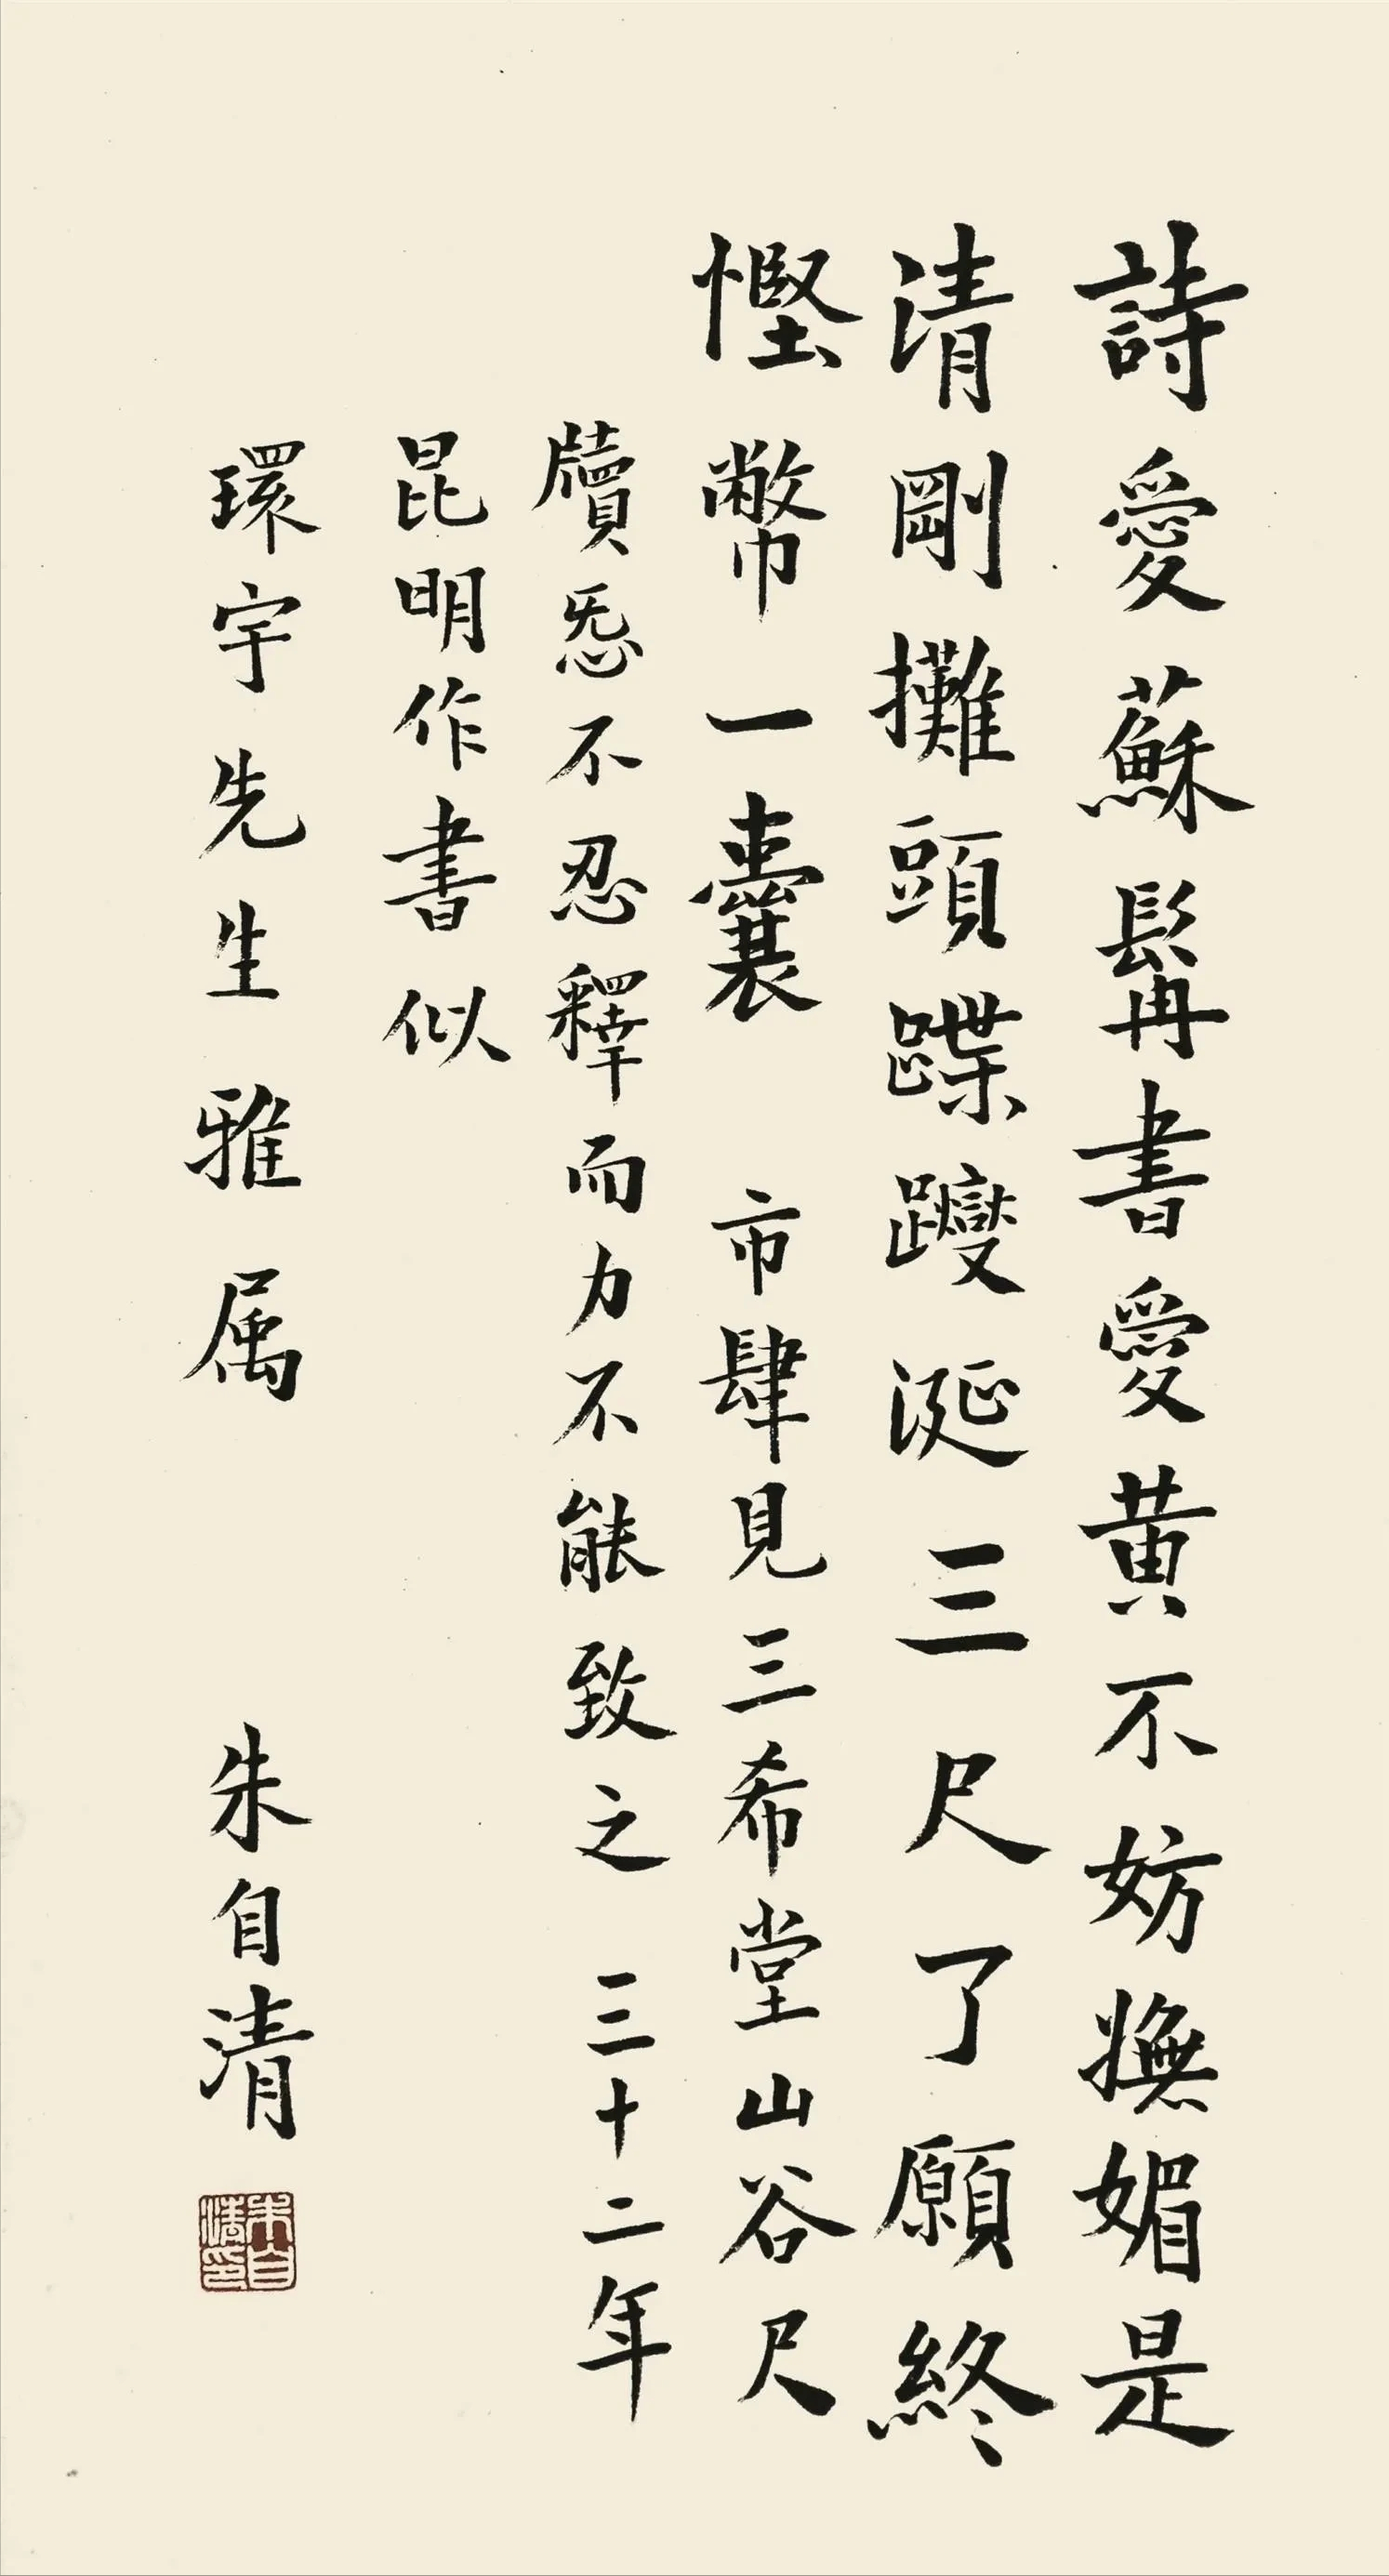 詩愛蘇髯書愛黃不妨嫵媚是
清剛攤頭蹀躞涎三尺了願終
慳幣一囊 市肆見三希堂山谷尺
牘悉不忍釋而力不能致之 三十二年
昆明作書似
環宇先生雅属 朱自清
朱自清印